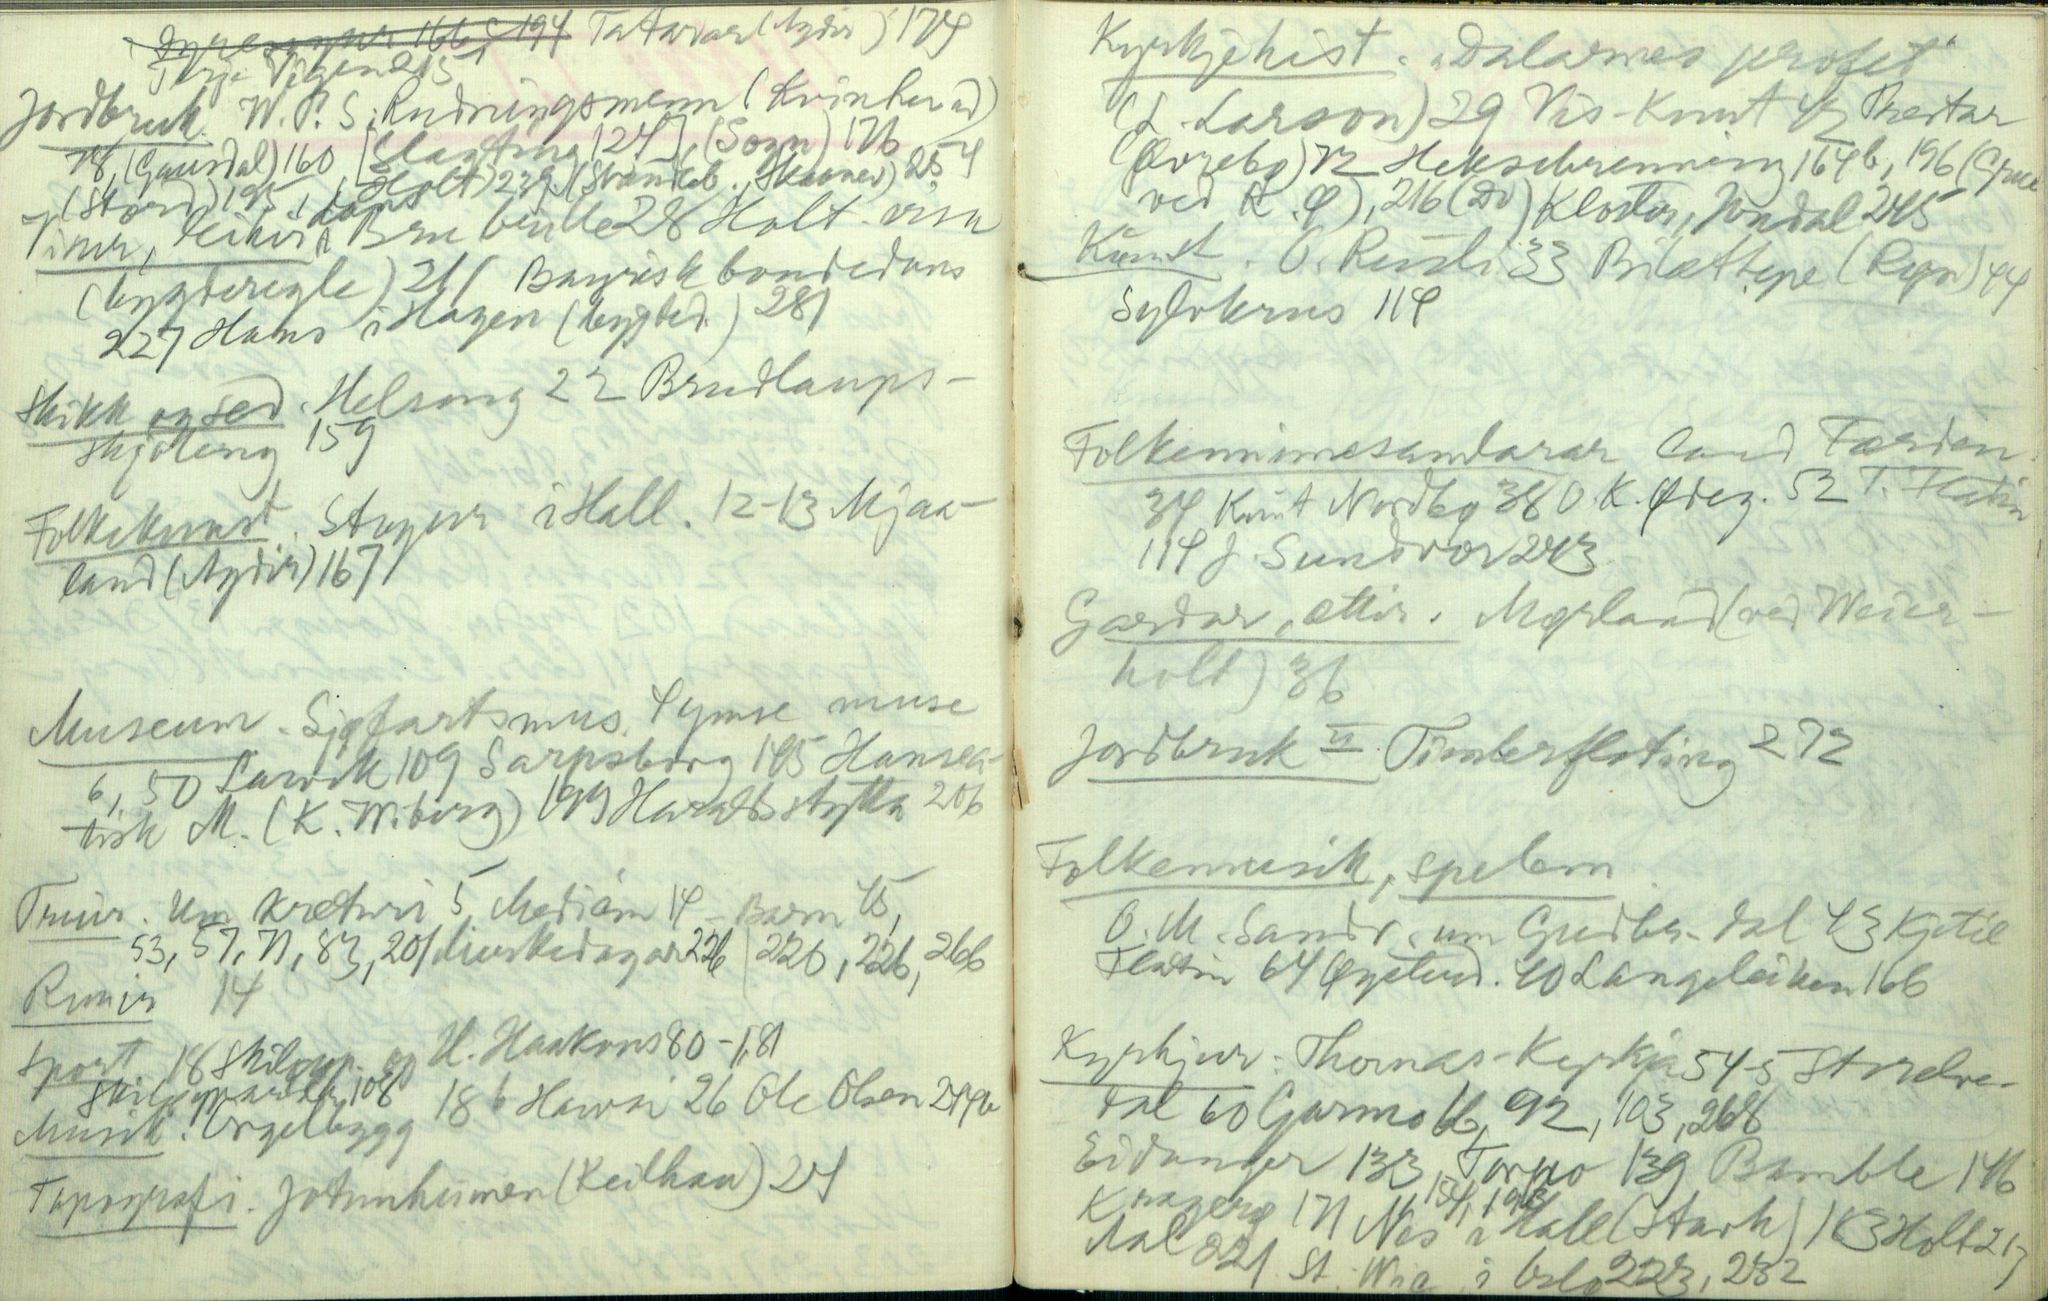 166, 194 Tatarar (Agder) 174
Terje Vigen 215
Jordbruk. W. P. S. Rudningsmenn (Kvinherad)
78, (Gausdal) 160, [Slaatting 124], (Sogn) 176
(Stord) 195, (Holt) 239, (Strandeb. Skaanev.) 254
Visur, leikir, dans Bru brulle 28 Holt-visa
(bygderegle) 211 Bayrisk bondedans
227 Hans i Hagen (bygded.) 281
Skikk og sed. Helsing 22 Brudlaups-
skjoling 159
Folkekunst. Stugur i Hall. 12-13 Mjaa-
land (Agder) 167
Museum. Sjøfartsmus. Tynse muse
6, 50 Larvik 109 Sarpsborg 145 Hansea-
tisk M. (K. Wiberg) 199 Haralds støtta 206
Truir. Um krøturi 5, Mediam 14 - Barn 45,
53, 57, 71, 83, 201 Merkedagar 226 | 226, 226, 266
Runir 14
Sport. 18 Skilaup. og H. Haakons 80-1, 81
108
Musik. Orgelbygg 18 b Hawai 26 Ole Olsen 244b
Topografi. Jotunheimen (Keilhau) 24
Kyrkjehist. "Dalarnes profet"
(L. Larson) 29 Vis-Knut 42 Prestar
(Øvrebø) 72 Heksebrenning 164b, 196 (Grue
ved K. ø), 216 (Do) Kloster, Jondal 245
Kunst. O. Rusti 33 Bilættepe (Rygn) 44
Sylvkrus 114
Folkeminnesamlarar Land Førden
34, Knut Nordbø 38 O. K. Ødeg. 52 T. Flatin
114 J. Sundvor 243
Gardar, ættir. Mørland (ved Weier-
holt) 36
Jordbruk II. Timberfløting 272
Folkemusik, spelem
O. M. Sandv. um Gudbr.-dal 43 Kjetil
Flatin 64 Øystend. 70 Langeleiken 166
Kyrkjur. Thomas-Kyrkja 54-5 Storelve-
dal 60 Garmo 66, 92, 103, 268
Eidanger 133, Torpo 139 Bamble 146
Kragerø 171 Nes i Hall (Stark) 183 Holt 217
154, 193
Aal 221 St. i Oslo 223, 232